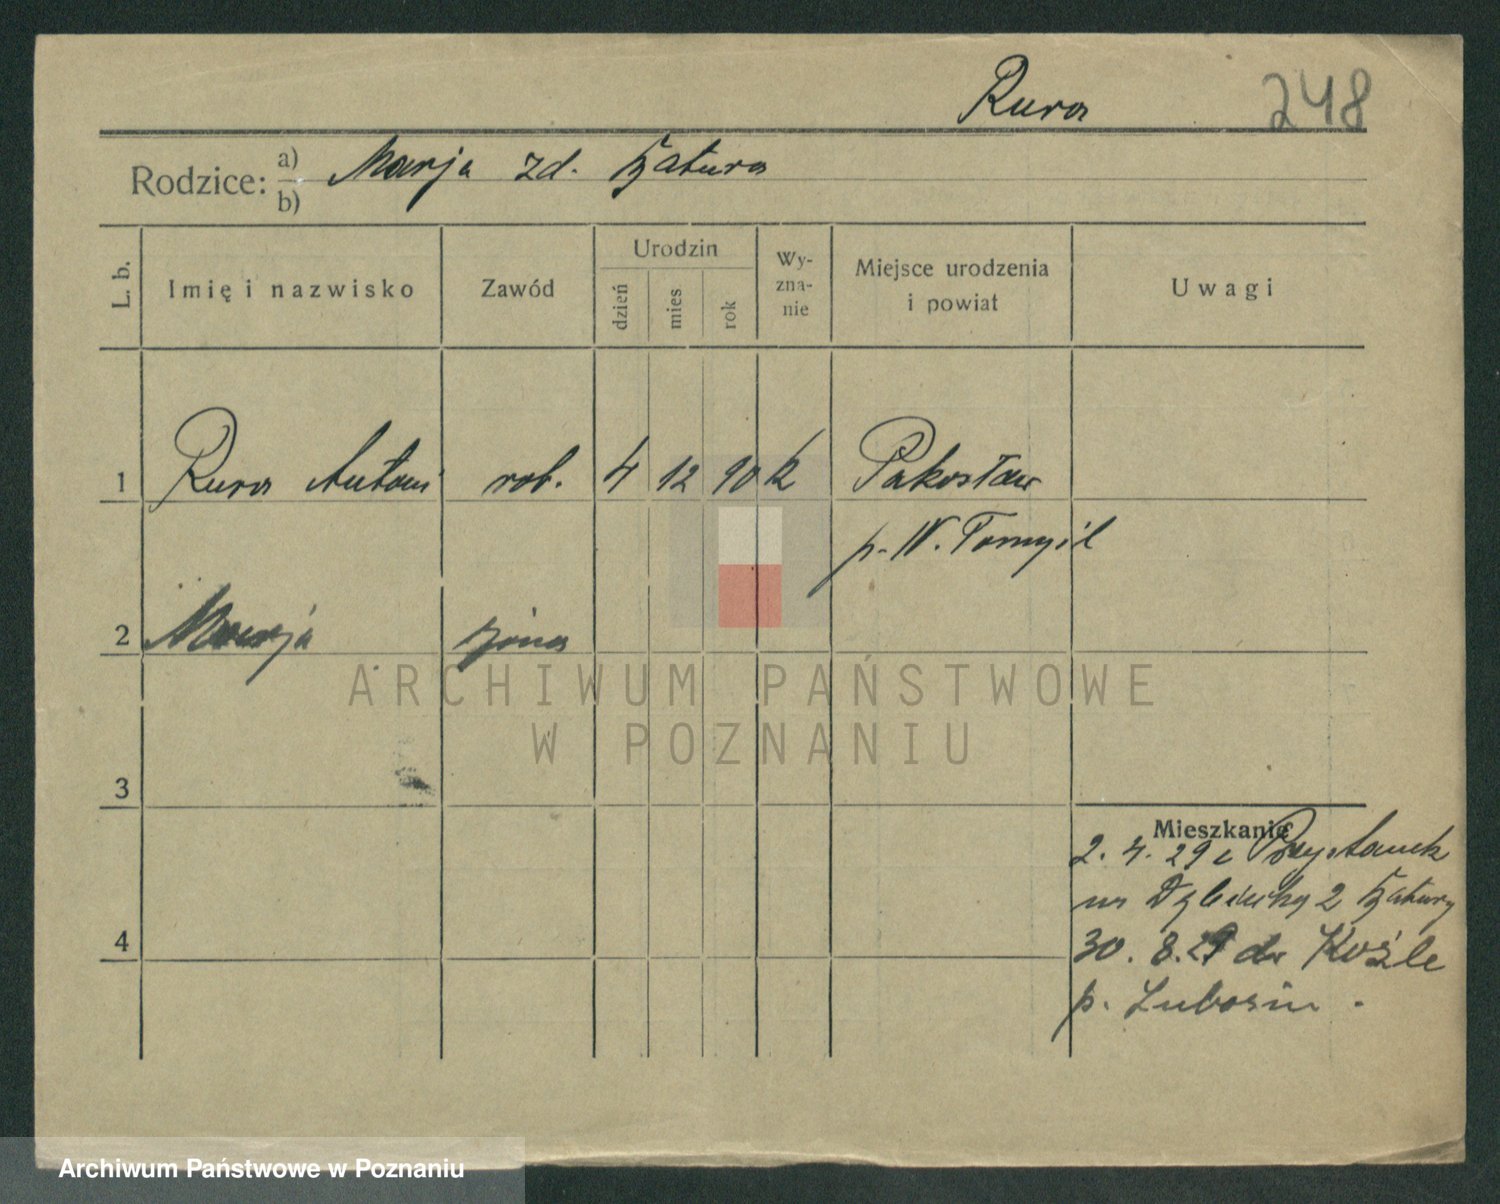 Rura 248
Rodzice: a) Marja zd. Batura
b)
L. b. Imię i nazwisko Zawód Urodzin dzień mies rok Wyznanie Miejsce urodzenia i powiat Uwagi
1 Rura Antoni rob. 4 12 90 k Pakosław
p. N. Tomyśl
2 Marja żona
3
Mieszkanie
2. 4. 29 z Przystanek
2 Batury
4
30. 8. 29 do Koźle
p. Lubosin.
ARCHIWUM PAŃSTWOWE
W POZNANIU
Archiwum Państwowe w Poznaniu